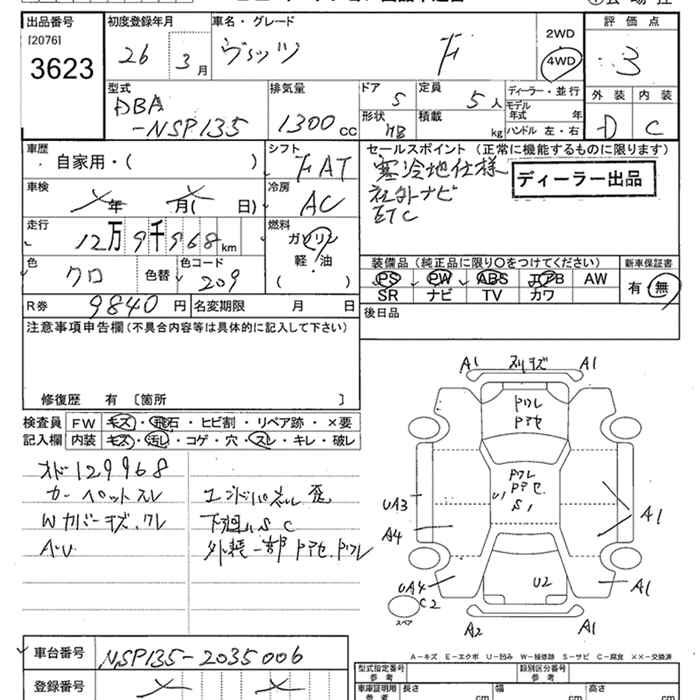 出品番号 初度登録年月 車名・グレード 評価点
[2076] 26 3月 ヴィッツ F 2WD 3
3623 4WD
型式 排気量 ドア 定員 ディーラー・並行 外装 内装
DBA 5 5人 モデル年式 年
-NSP135 1300cc 形状 HB 積載 kg ハンドル 左・右 D C
車歴 シフト セールスポイント(正常に機能するものに限ります)
自家用・( ) FAT 寒冷地仕様 ディーラー出品
車検 冷房 社外ナビ
年 月( 日) AC ETC
走行 燃料
12万9千968km ガソリン
軽・油
( )
色 色替 色コード 装備品(純正品に限り○をつけてください) 新車保証書
クロ 209 PS PW ABS エアB AW 有・無
SR ナビ TV カワ
R券 9840円 名変期限 月 日 後日品
注意事項申告欄(不具合内容等は具体的に記入して下さい)
修復歴 有 [箇所 ]
検査員 FW キズ・飛石・ヒビ割・リペア跡・×要
記入欄 内装 キズ・汚レ・コゲ・穴・スレ・キレ・破レ
オド129968
カーペットスレ エンドパネル歪
Wカバーキズ、ワレ 下廻りS C
AU 外装一部ドアセ、ドワレ
A1 スリキズ A1
ドワレ
ドアセ
ドワレ
ドアセ
U1
S1
UA3 A1
A4
UA4 U2 A1
C2
スペア
A2 A1
A-キズ E-エクボ U-凹み W-補修跡 S-サビ C-腐食 ××-交換済
車台番号 NSP135-2035006 型式指定番号 参考 類別区分番号 参考
登録番号 車庫証明用 参考 長さ cm 幅 cm 高さ cm